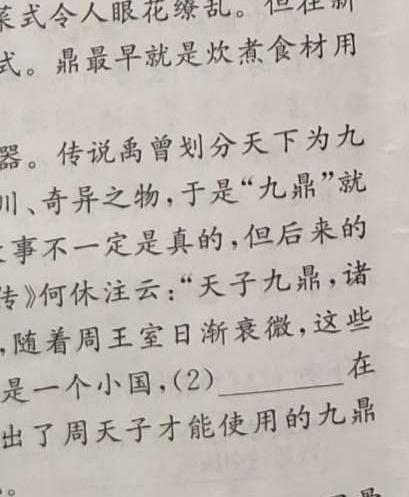 菜式令人眼花缭乱。但在新
式。鼎最早就是炊煮食材用
器。传说禹曾划分天下为九
川、奇异之物，于是“九鼎”就
事不一定是真的，但后来的
传》何休注云：“天子九鼎，诸
，随着周王室日渐衰微，这些
是一个小国，(2)________在
出了周天子才能使用的九鼎
。